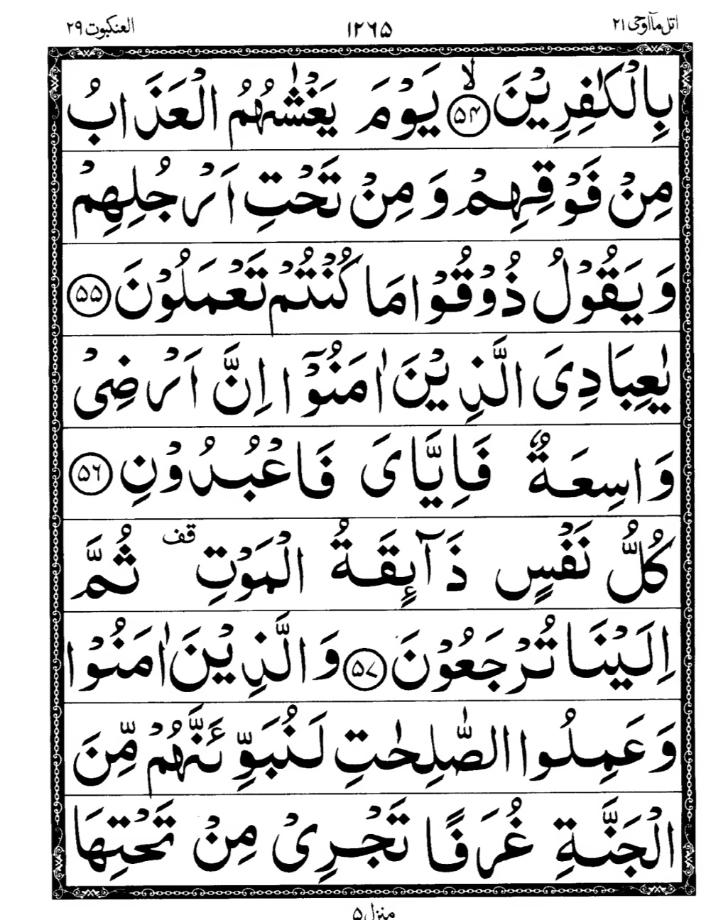 اتل مآاوحی ۲۱ ۱۲۶۵ العنکبوت ۲۹
بِالْكٰفِرِيْنَ ۙ﴿۵۴﴾ يَوْمَ يَغْشٰىهُمُ الْعَذَابُ
مِنْ فَوْقِهِمْ وَ مِنْ تَحْتِ اَرْجُلِهِمْ
وَ يَقُوْلُ ذُوْقُوْا مَا كُنْتُمْ تَعْمَلُوْنَ ﴿۵۵﴾
يٰعِبَادِىَ الَّذِيْنَ اٰمَنُوْۤا اِنَّ اَرْضِىْ
وَاسِعَةٌ فَاِيَّاىَ فَاعْبُدُوْنِ ﴿۵۶﴾
كُلُّ نَفْسٍ ذَآئِقَةُ الْمَوْتِ قف ثُمَّ
اِلَيْنَا تُرْجَعُوْنَ ﴿۵۷﴾ وَ الَّذِيْنَ اٰمَنُوْا
وَ عَمِلُوا الصّٰلِحٰتِ لَنُبَوِّئَنَّهُمْ مِّنَ
الْجَنَّةِ غُرَفًا تَجْرِىْ مِنْ تَحْتِهَا
منزل ۵